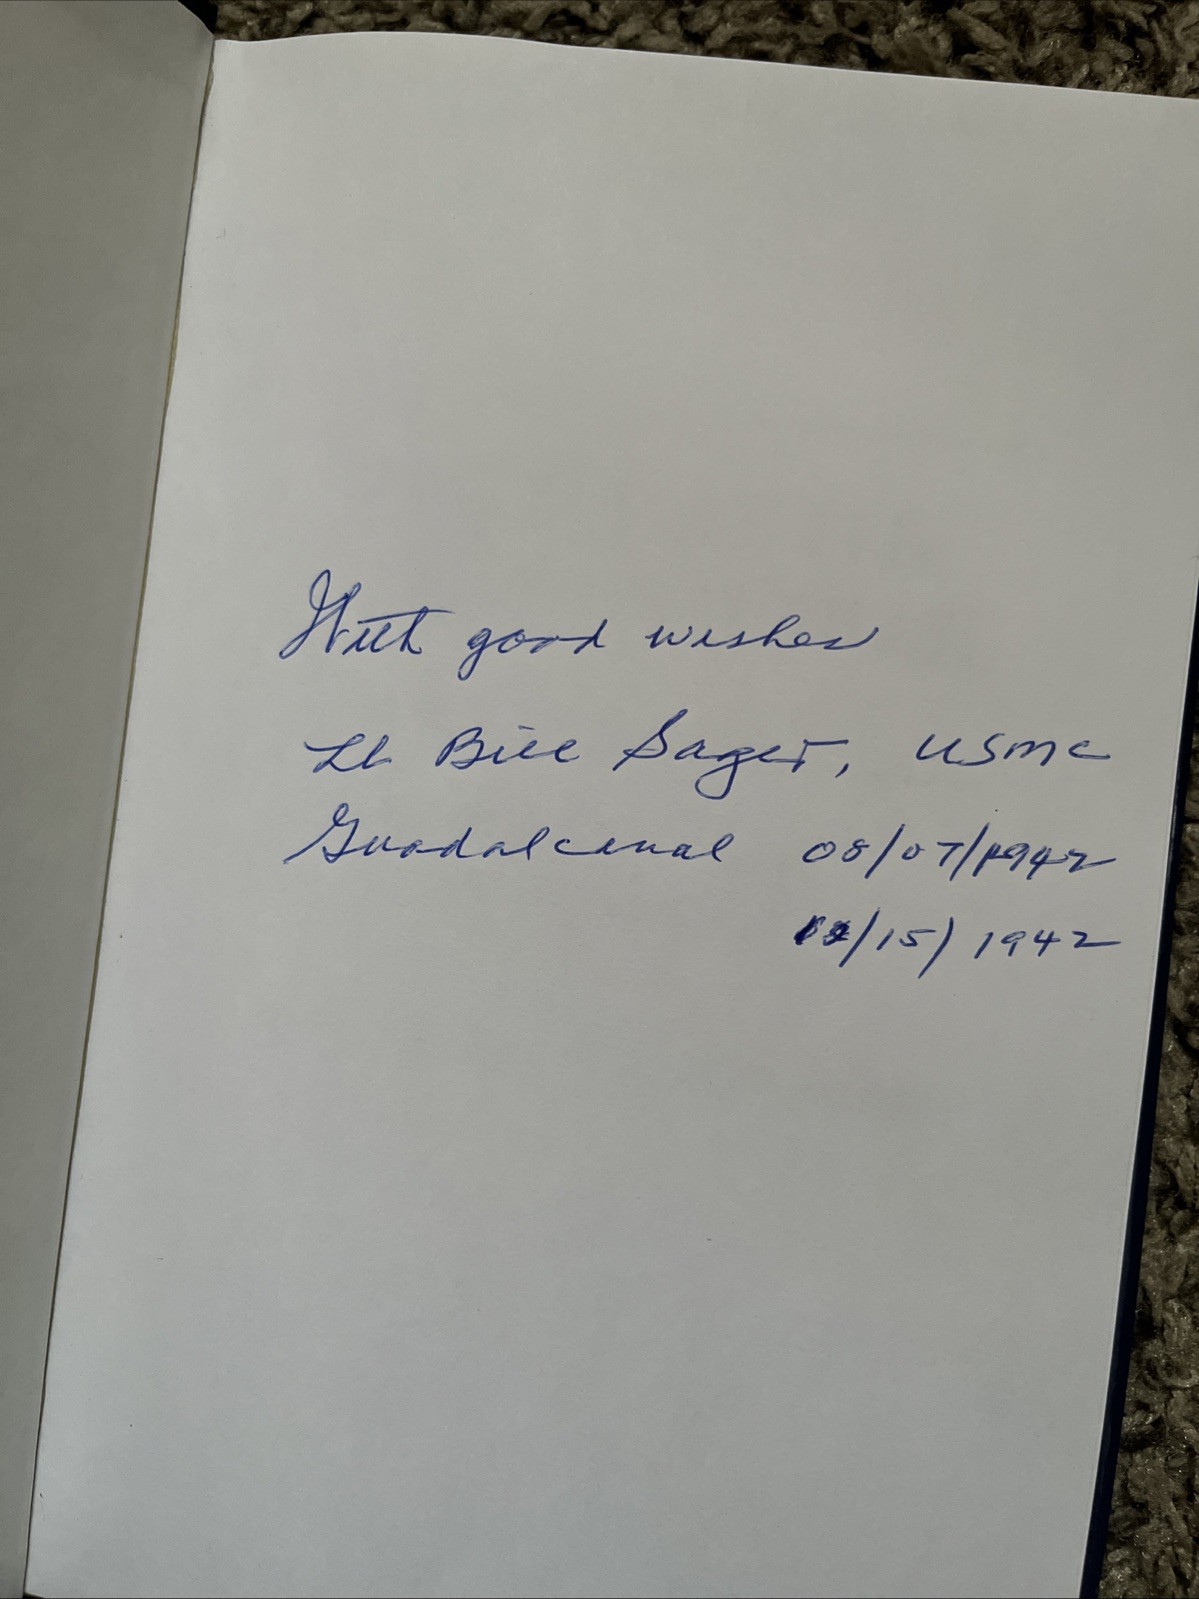 With good wishes
Lt Bill Sager, USMC
Guadalcanal 08/07/1942
12/15/1942